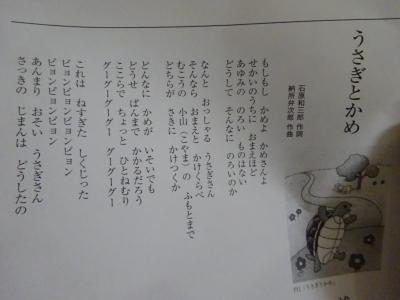 うさぎとかめ
石原和三郎 作詞
納所弁次郎 作曲
もしもし かめよ かめさんよ
せかいのうちに おまえほど
あゆみの のろい ものはない
どうして そんなに のろいのか
なんと おっしゃる うさぎさん
そんなら おまえと かけくらべ
むこうの 小山(こやま)の ふもとまで
どちらが さきに かけつくか
どんなに かめが いそいでも
どうせ ばんまで かかるだろう
ここらで ちょっと ひとねむり
グーグーグーグー グーグーグー
これは ねすぎた しくじった
ピョンピョンピョンピョン
ピョンピョンピョン
あんまり おそい うさぎさん
さっきの じまんは どうしたの